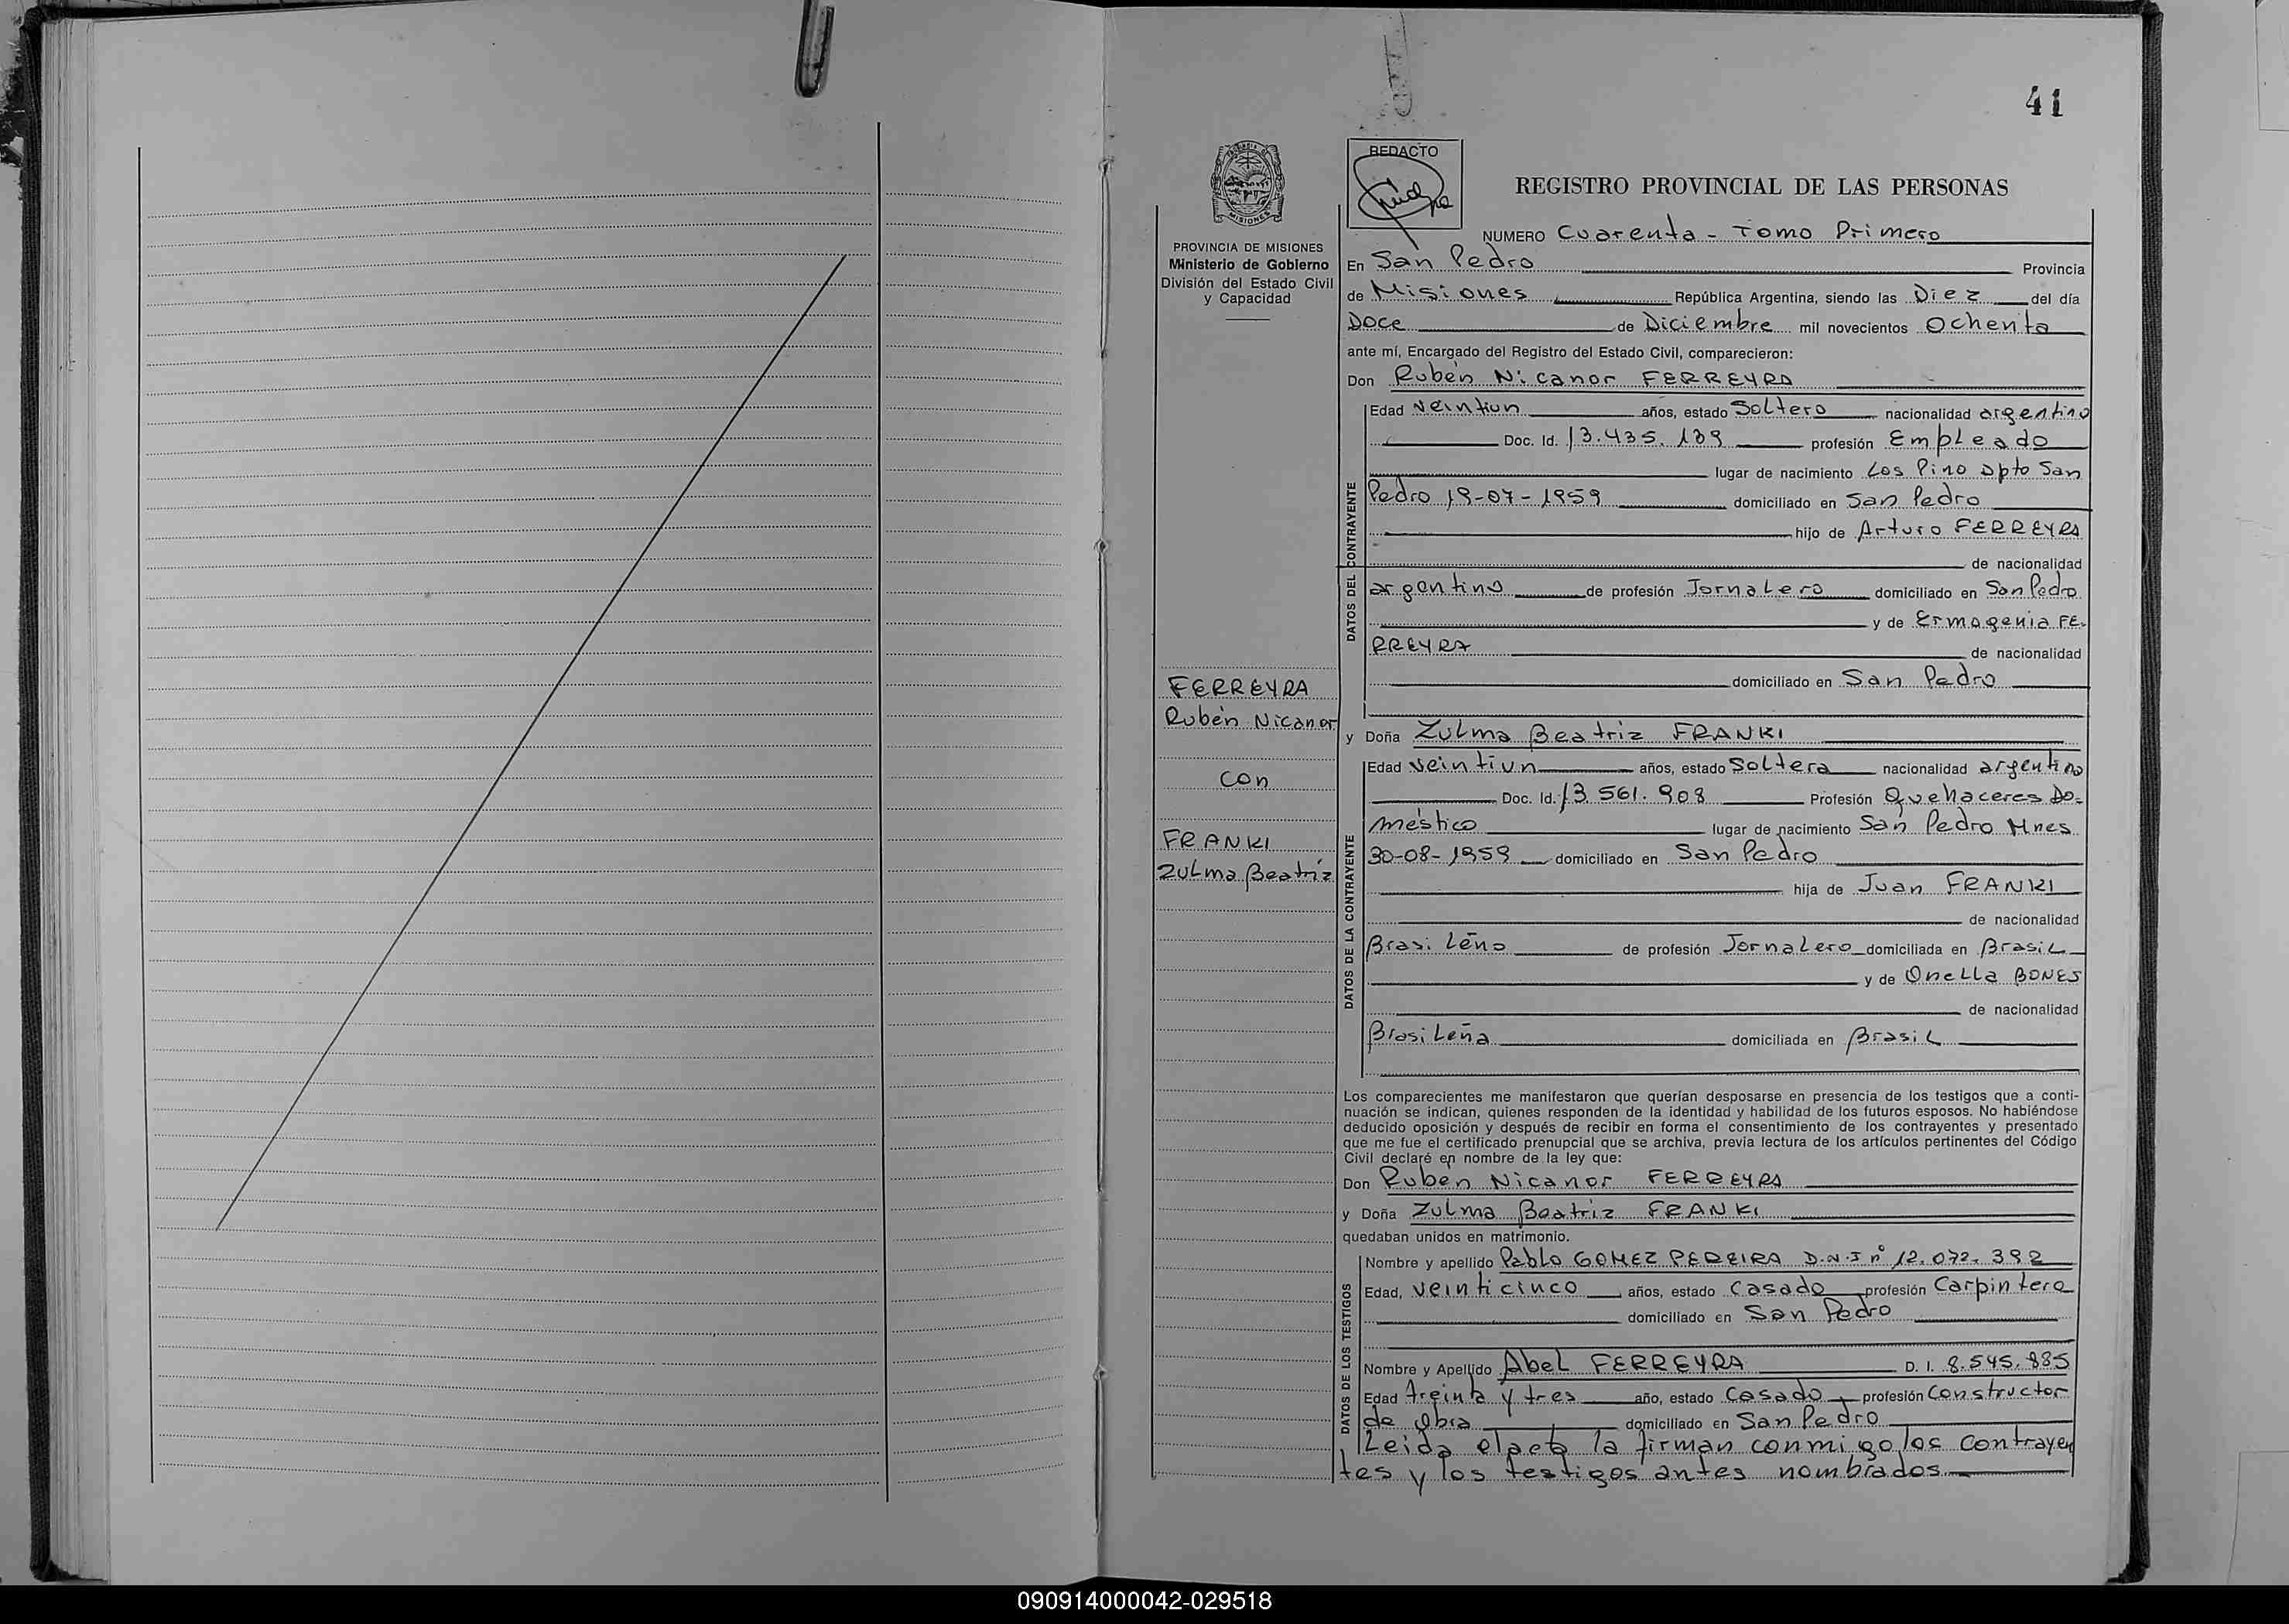 41
REDACTO
REGISTRO PROVINCIAL DE LAS PERSONAS
MISIONES
PROVINCIA DE MISIONES
Ministerio de Gobierno
División del Estado Civil
y Capacidad
NUMERO Cuarenta - Tomo Primero
En San Pedro Provincia
de Misiones República Argentina, siendo las Diez del día
Doce de Diciembre mil novecientos Ochenta
ante mí, Encargado del Registro del Estado Civil, comparecieron:
Don Rubén Nicanor FERREYRA
DATOS DEL CONTRAYENTE
Edad veintiun años, estado Soltero nacionalidad argentino
Doc. Id. 13.435.139 profesión Empleado
lugar de nacimiento Los Pino Dpto San
Pedro 19-07-1959 domiciliado en San Pedro
hijo de Arturo FERREYRA
de nacionalidad
argentino de profesión Jornalero domiciliado en San Pedro
y de Ermogenia FE-
RREYRA de nacionalidad
domiciliado en San Pedro
FERREYRA
Rubén Nicanor
con
FRANKI
Zulma Beatriz
y Doña Zulma Beatriz FRANKI
DATOS DE LA CONTRAYENTE
Edad veintiun años, estado Soltera nacionalidad argentino
Doc. Id. 13.561.908 Profesión Quehaceres Do-
méstico lugar de nacimiento San Pedro Mnes
30-08-1959 domiciliado en San Pedro
hija de Juan FRANKI
de nacionalidad
Brasileño de profesión Jornalero domiciliada en Brasil
y de Onella BONES
de nacionalidad
Brasileña domiciliada en Brasil
Los comparecientes me manifestaron que querían desposarse en presencia de los testigos que a conti-
nuación se indican, quienes responden de la identidad y habilidad de los futuros esposos. No habiéndose
deducido oposición y después de recibir en forma el consentimiento de los contrayentes y presentado
que me fue el certificado prenupcial que se archiva, previa lectura de los artículos pertinentes del Código
Civil declaré en nombre de la ley que:
Don Ruben Nicanor FERREYRA
y Doña Zulma Beatriz FRANKI
quedaban unidos en matrimonio.
DATOS DE LOS TESTIGOS
Nombre y apellido Pablo GOMEZ PEREIRA D.N.I nº 12.072.392
Edad, veinticinco años, estado Casado profesión Carpintero
domiciliado en San Pedro
Nombre y Apellido Abel FERREYRA D. I. 8.545.885
Edad treinta y tres año, estado Casado profesión Constructor
de obra domiciliado en San Pedro
Leida el acta la firman conmigo los contrayen
tes y los testigos antes nombrados
090914000042-029518